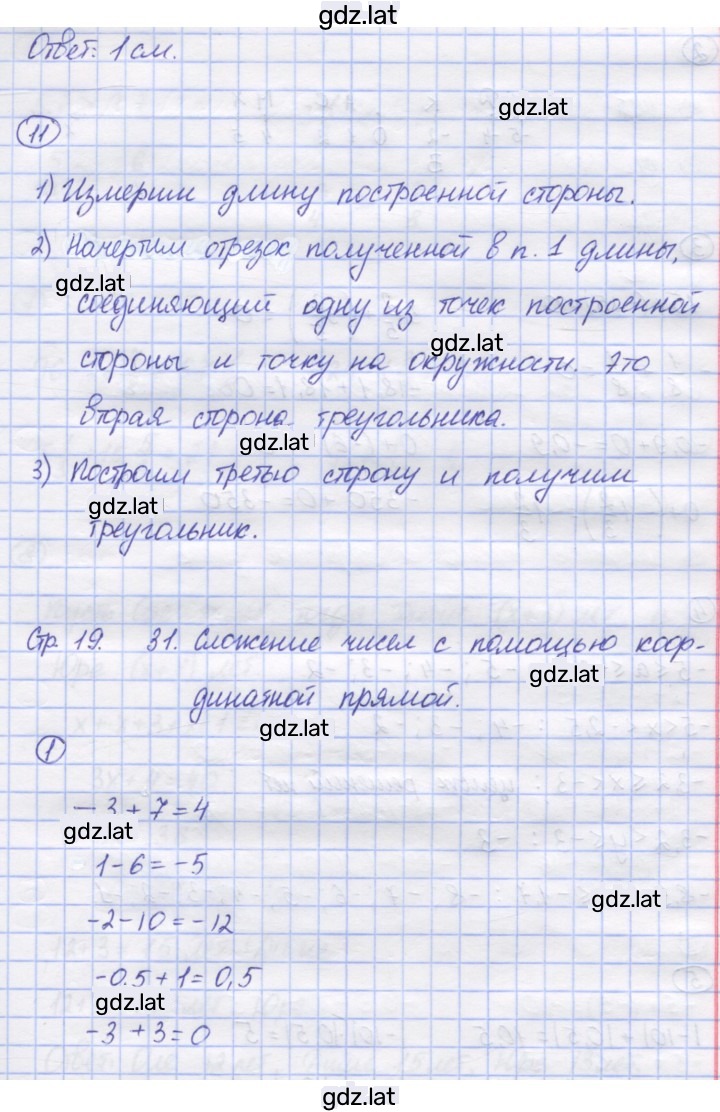 gdz.lat
Ответ: 1 см.
gdz.lat
11
1) Измерим длину построенной стороны.
2) Начертим отрезок полученной в п. 1 длины,
gdz.lat
соединяющий одну из точек построенной
gdz.lat
стороны и точку на окружности. Это
вторая сторона треугольника.
gdz.lat
3) Построим третью сторону и получим
gdz.lat
треугольник.
Стр. 19. 31. Сложение чисел с помощью коор-
gdz.lat
динатной прямой.
gdz.lat
1
- 3 + 7 = 4
gdz.lat
1 - 6 = -5
gdz.lat
-2 - 10 = -12
-0.5 + 1 = 0,5
gdz.lat
-3 + 3 = 0
gdz.lat